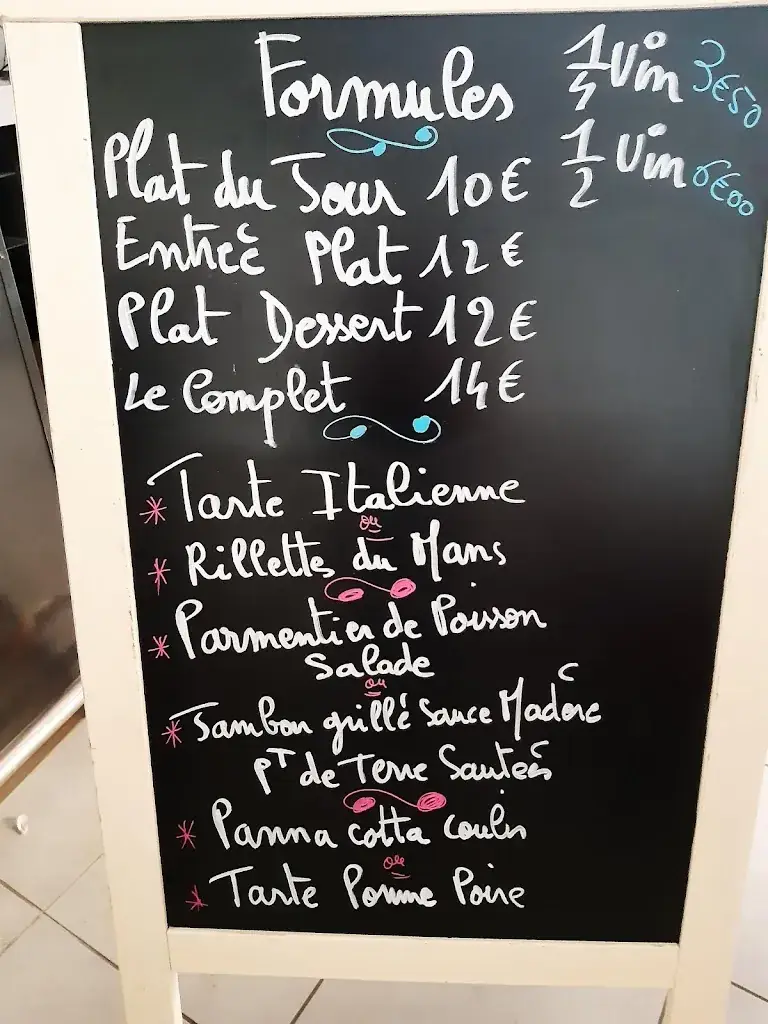 Formules
1/4 Vin 3€50
1/2 Vin 6€00
Plat du Jour 10€
Entrée Plat 12€
Plat Dessert 12€
Le Complet 14€
* Tarte Italienne
ou
* Rillettes du Mans
* Parmentier de Poisson
Salade
ou
* Jambon grillé Sauce Madère
PT de Terre Sautées
* Panna cotta Coulis
ou
* Tarte Pomme Poire